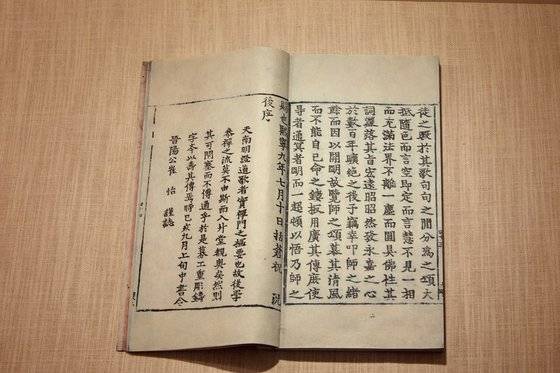 之厥於其歌句句之間分爲之頌大
抵隨色而言空即定而言慧不見一相
而充滿法界不離一塵而圓具佛性其
詞灑落其旨宏遠昭昭然發永嘉之心
於數百年曠絶之後予竊幸叩師之緖
餘而因以開明故覽師之頌慕其清風
而不能自已命之鏤板用廣其傳庶使
尋者通冥者明而一超頓以悟乃師之
賜也熙寧九年七月十日括蒼祝 況
後序
夫南明證道歌者實禪門之樞要也故後學
參禪之流莫不由斯而入升堂覩奧矣然則
其可閉塞而不傳通乎於是募工重彫鑄
字本以壽其傳焉時己亥九月上旬中書令
晉陽公崔 怡 謹誌